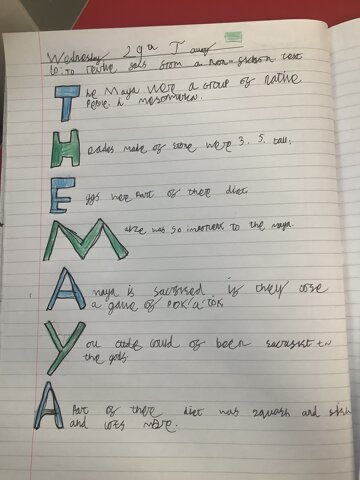 Wednesday 29a
LO: To retrive from a non-fiction text
The Maya were a group of native
People in mesomarica.
Heades made of stone were 3. 5. tall.
Eggs were Part of there diet
Maize was so important to the maya.
A maya is sacrissed if they lose
a game of POK a TOK
You could of been sacrasist to
the gods.
A Part of there diet was squash and
and lots more.